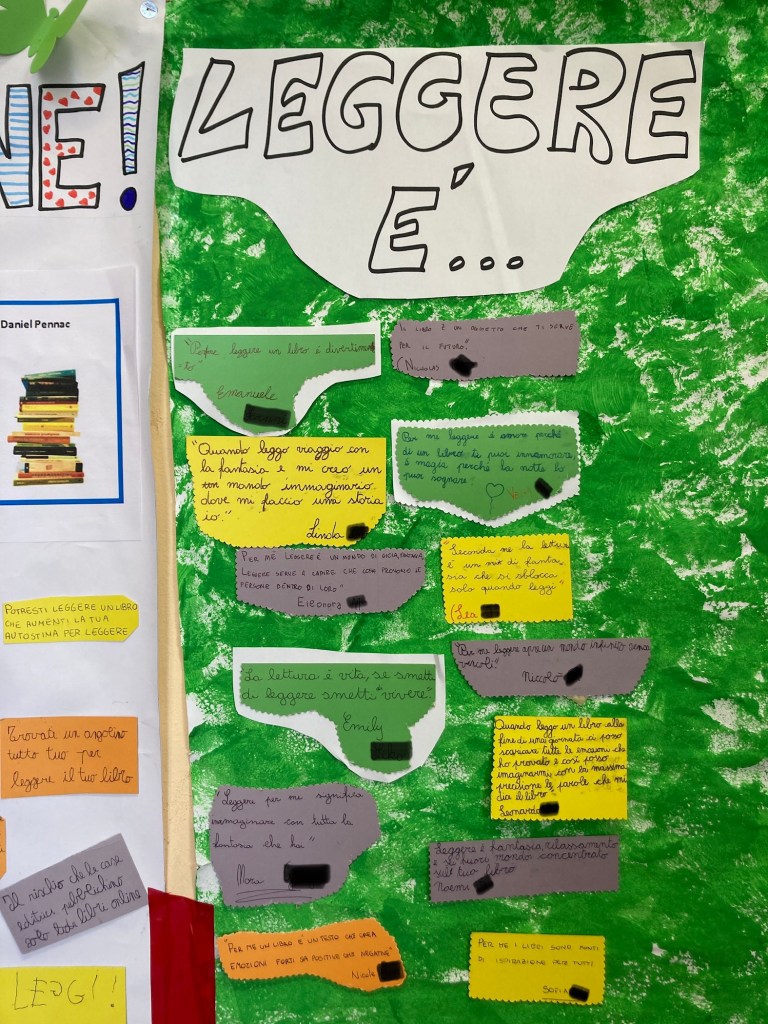 NE!
Daniel Pennac
POTRESTI LEGGERE UN LIBRO
CHE AUMENTI LA TUA
AUTOSTIMA PER LEGGERE
Trovate un angolino
tutto tuo per
leggere il tuo libro
Il rischio che le case
editrici pubblichino
solo libri online
LEGGI!
LEGGERE
É...
"Perfme leggere un libro è divertimen
to"
Emanuele
IL LIBRO È UN OGGETTO CHE TI SERVE
PER IL FUTURO."
(NICKOLAS
"Quando leggo viaggio con
la fantasia e mi creo un
mondo immaginario
dove mi faccio una storia
io."
Linda
Per me leggere è amore perché
di un libro te puoi innamorare
è magia perché la notte lo
puoi sognare.
PER ME LEGGERE È UN MONDO DI GIOIA,
LEGGERE SERVE A CAPIRE CHE COSA PROVONO LE
PERSONE DENTRO DI LORO"
ELEONORA
"Seconda me la lettura
è un mix di fanta
sia che si sblocca
solo quando leggi"
(Lea
"Per me leggere apre un mondo infinito senza
vincoli."
Niccolò
La lettura è vita, se smetti
di leggere smetti "vivere".
Emily
Quando leggo un libro alla
fine di una giornata ci posso
scaricare tutte le emozioni che
ho provato e così posso
imaginarmi con la massima
precisione le parole che mi
dia il libro
Leonardo
"Leggere per me significa
immaginare con tutta la
fantasia che hai"
Mora
Leggere è fantasia, rilassamento
e si fuori mondo concentrato
sull tuo libro
Noemi
"PER ME UN LIBRO È UN TESTO CHE CREA
EMOZIONI FORTI SIA POSITIVE CHE NEGATIVE"
Nicole
PER ME I LIBRI SONO FONTI
DI ISPIRAZIONE PER TUTTI
SOFIA